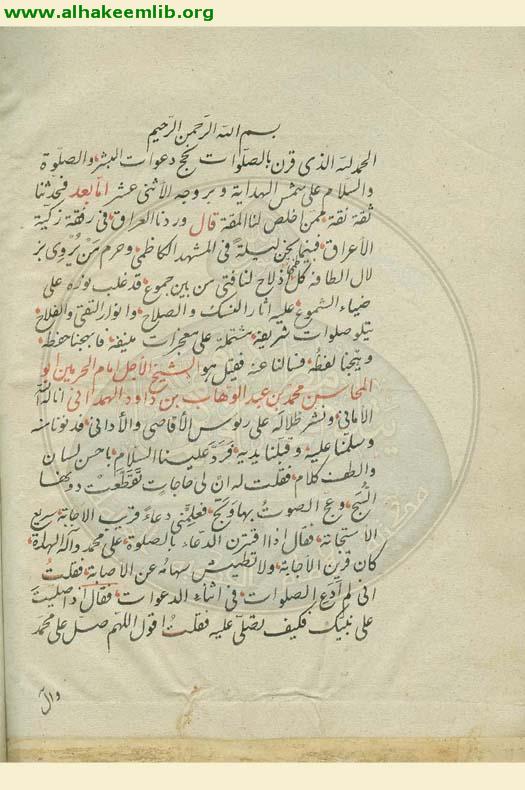 www.alhakeemlib.org
بسم الله الرحمن الرحيم
الحمد لله الذى قرن بالصلوات نجح دعوات البشر والصلوة
والسلام على شمس الهداية وبروجه الأثنى عشر اما بعد فحدثنا
ثقة نقة ممن اخلص لنا المقة قال وردنا العراق فى رفقة زكية
الأعراق فبينما نحن ليلة فى المشهد الكاظمى وحرم من يروى بز
لال الطافه كل اذلاح لنا فتى من بين جموع قد غلب نوره على
ضياء الشموع عليه اثار النسك والصلاح وانوار التقى والفلاح
يتلو صلوات شريفة مشتملة على معجزات منيفة فابهجنا حفظه
واعجبنا لفظه فسالنا عنه فقيل هو الشيخ الأجل امام الحرمين ابو
المحاسن محمد بن عبد الوهاب بن داود الهمدانى اناله الله
الأمانى ونشر ظلاله على رؤس الأقاصى والأدانى فدنونا منه
وسلمنا عليه وقبلنا يديه فرد علينا السلام باحسن لسان
والطف كلام فقلت له ان لى حاجات تقطعت دونها
وبح الصوت بها فعلمنى دعاء قريب الاجابة سريع
الاستجابة فقال اذا اقترن الدعاء بالصلوة على محمد وآله الهداة
كان قرين الأجابة ولا تطيش سهامه عن الأصابة فقلت
انى لم ادع الصلوات فى اثناء الدعوات فقال اذا صليت
على نبيك فكيف تصلى عليه فقلت اقول اللهم صل على محمد
وآل